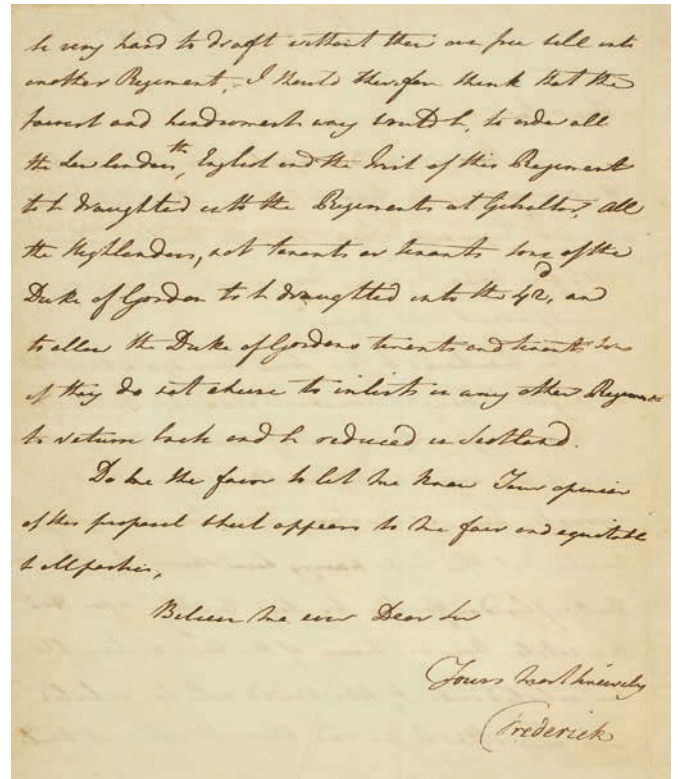 be very hard to draft without their own free will into
another Regiment, I should therefore think that the
fairest and handsomest way would be, to order all
the Lowlanders, the English and the Irish of this Regiment
to be draughted into the Regiments at Gibraltar, all
the Highlanders, not tenants or tenants sons of the
Duke of Gordon to be draughted into the 42d, and
to allow the Duke of Gordons tenants and tenants sons
if they do not chuse to inlist in any other Regiment
to return back and be reduced in Scotland.
Do me the favor to let me know Your opinion
of this proposal that appears to me fair and equitable
to all parties,
Believe me ever Dear Sir
Yours most sincerely
Frederick